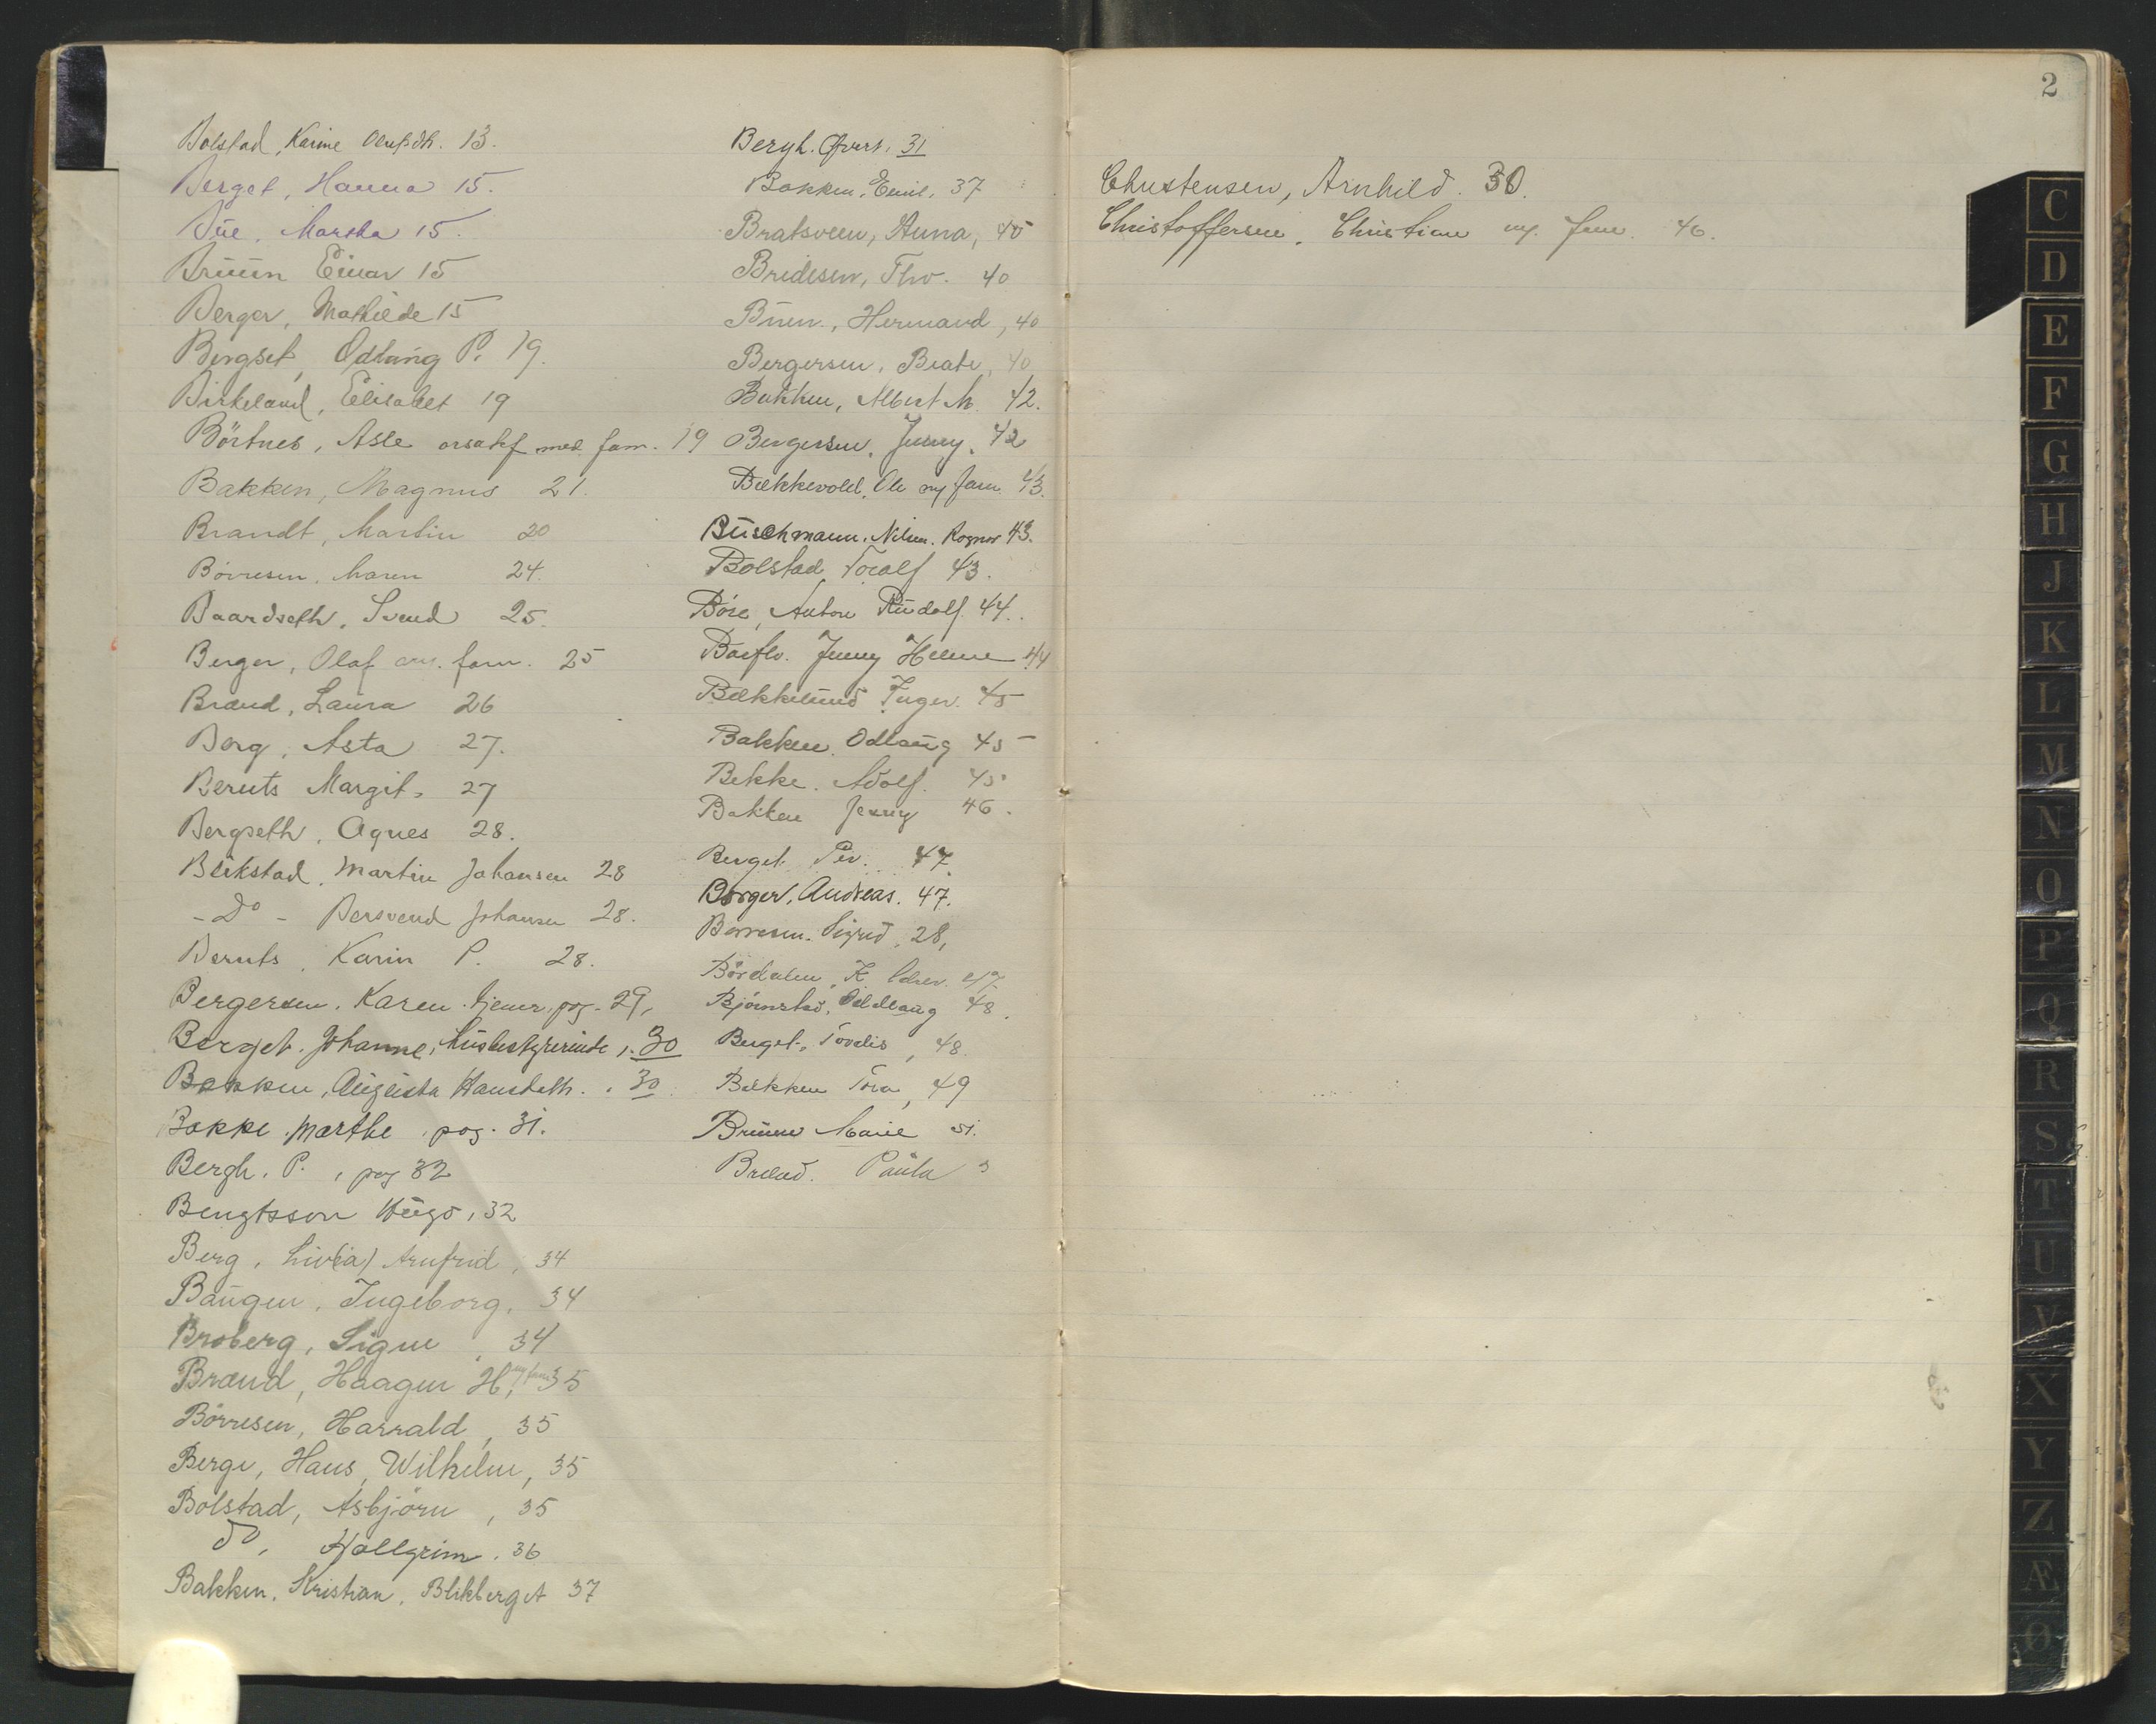 Bolstad, Karine Olufsdtr. 13.
Berget, Hanna 15.
Bue, Martha 15.
Bruun Einar 15
Berger, Mathilde 15
Bergset, Odlaug P. 19.
Birkeland, Elisabet 19
Börtnes, Asle med fam. 19
Bakken, Magnus 21.
Brandt, Martin 20
Börresen, Maren 24.
Baardseth, Svend 25.
Berger, Olaf m. fam. 25
Brænd, Laura 26
Berg, Asta 27.
Bernts Margit 27
Bergseth, Agnes 28.
Blikstad, Martin Johansen 28
- Do - Bersvend Johansen 28.
Bernts, Karin P. 28.
Bergersen, Karen tjener. pag. 29,
Berget, Johanne, husbestyrerinde, 30
Bakken, Augusta Hansdatter. 30
Bakke Marthe pag. 31.
Bergh, P., pag 32
Bengtsson Hugo, 32
Berg, Liv(ia) Arnfrid, 34
Baugen, Ingeborg, 34
Broberg, Signe, 34
Brænd, Haagen H, m/fam 35
Börresen, Harald, 35
Berge, Hans Wilhelm, 35
Bolstad, Asbjörn, 35
do, Hallgrim. 36
Bakken, Kristian, Blikberget 37
Bergh. 31
Bakken, Emil, 37
Bratsveen, Anna, 40
Bredesen, Thv. 40
Buen, Hermand, 40
Bergersen, Beate, 40
Bakken, Albert M. 42.
Bergersen, Jenny, 42
Bækkevold, Ole m/ fam. 43.
Buschmann, Nilsen, Ragnar 43.
Bolstad Toralf 43.
Böse, Anton Rudolf 44.
Jenny Helene 44
Bækkelund Inger 45
Bakken Odlaug 45
Bekke. Adolf. 45
Bakken Jenny 46.
Berget Per. 47.
Berger, Andreas. 47.
Börresen. Sigrid, 28,
Bördalen, K. 47
Björnstad, Oddlaug 48.
Berget, Tordis, 48.
Bækken Tora, 49
Bruun Marie 51.
Brænd. Paula 3
2
Christensen, Arnhild. 30.
Christoffersen, Christian m/. fam. 46.
C
D
E
F
G
H
J
K
L
M
N
O
P
Q
R
S
T
U
V
X
Y
Z
Æ
Ø